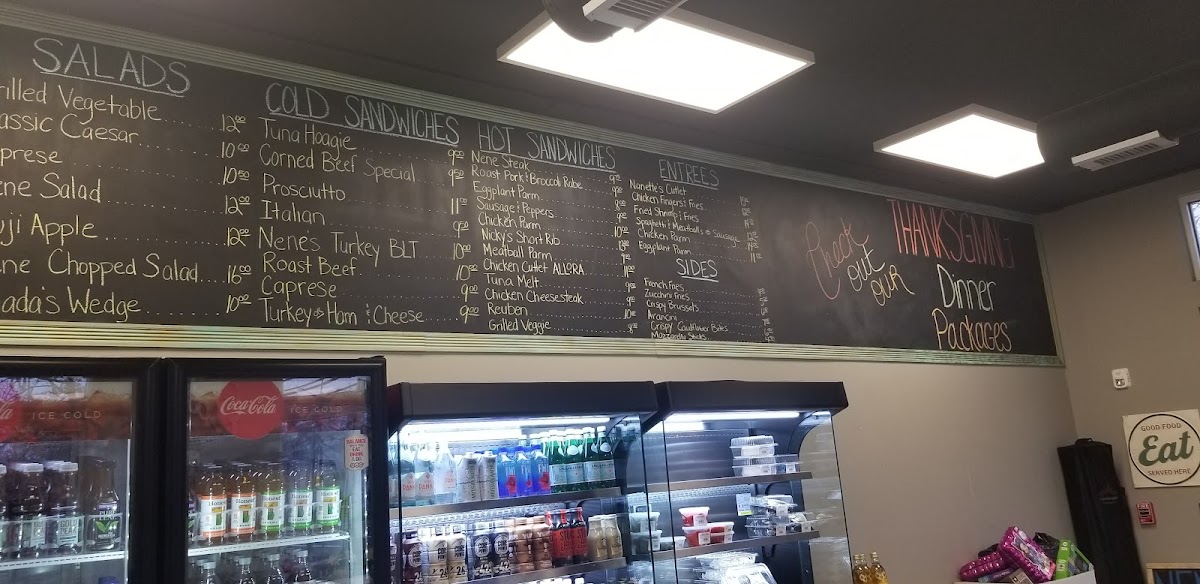 SALADS
rilled Vegetable 12.00
assic Caesar 10.00
prese 10.50
ene Salad 12.00
uji Apple 12.00
ne Chopped Salad 16.00
ada's Wedge 10.00
COLD SANDWICHES
Tuna Hoagie 9.00
Corned Beef Special 9.50
Prosciutto 11.00
Italian 9.00
Nene's Turkey BLT 10.00
Roast Beef 10.00
Caprese 9.00
Turkey or Ham & Cheese 9.00
HOT SANDWICHES
Nene Steak
Roast Pork & Broccoli Rabe
Eggplant Parm
Sausage & Peppers
Chicken Parm
Nicky's Short Rib
Meatball Parm
Chicken Cutlet ALLORA
Tuna Melt
Chicken Cheesesteak
Reuben
Grilled Veggie
ENTREES
Nanette's Cutlet
Chicken Fingers & Fries
Fried Shrimp & Fries
Spaghetti & Meatballs or Sausage
Chicken Parm
Eggplant Parm
SIDES
French Fries
Zucchini Fries
Crispy Brussels
Arancini
Crispy Cauliflower Bites
Mozzarella Sticks
Check
out
our
THANKSGIVING
Dinner
Packages
ICE COLD
Coca-Cola
ICE COLD
Honest
GOOD FOOD
Eat
SERVED HERE
FIRE